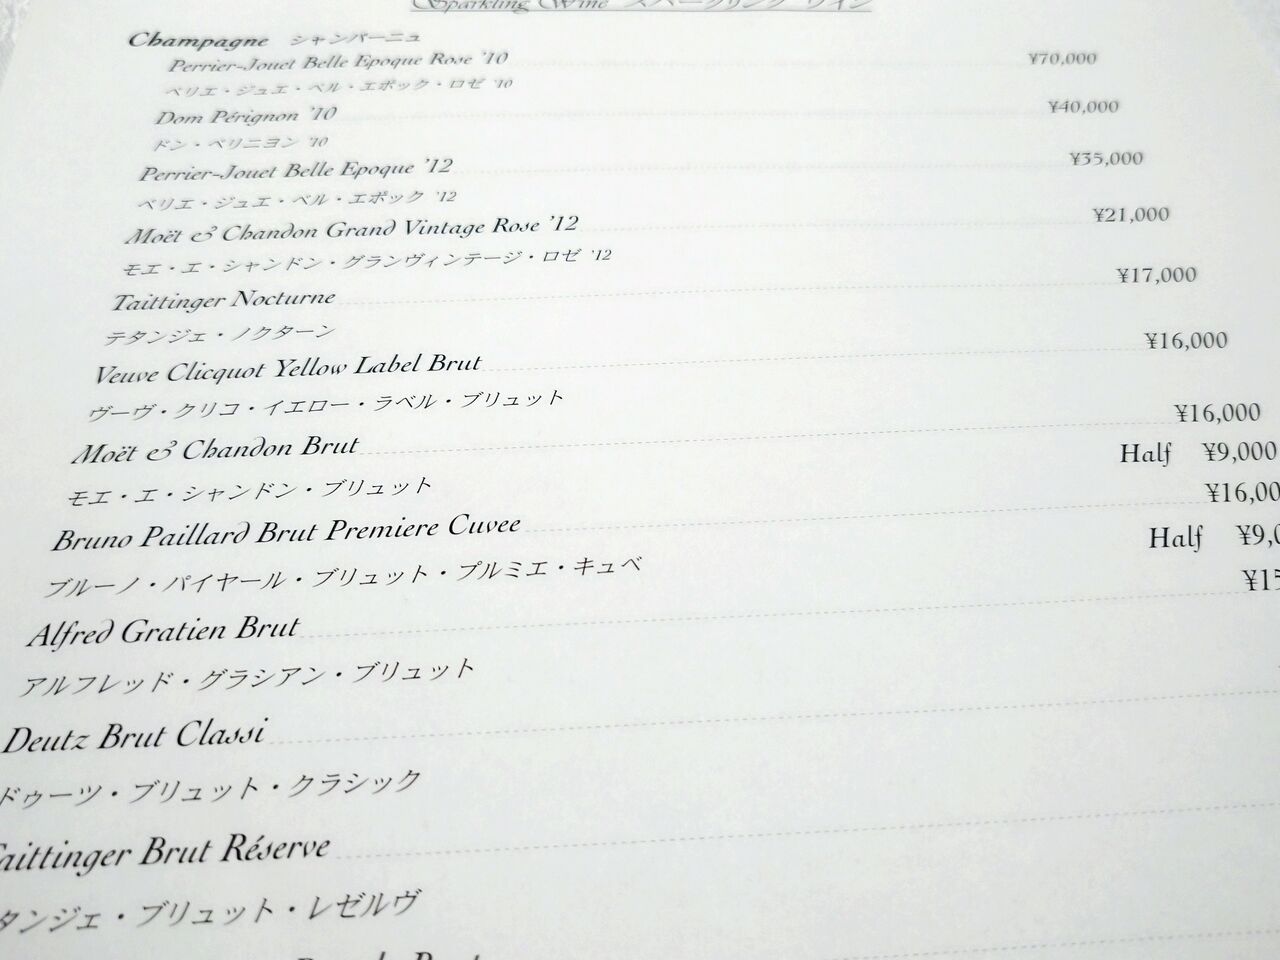 Sparkling Wine スパークリング ワイン
Champagne シャンパーニュ
Perrier-Jouet Belle Epoque Rose '10 ¥70,000
ペリエ・ジュエ・ベル・エポック・ロゼ '10
Dom Pérignon '10 ¥40,000
ドン・ペリニヨン '10
Perrier-Jouet Belle Epoque '12 ¥35,000
ペリエ・ジュエ・ベル・エポック '12
Moët & Chandon Grand Vintage Rose '12 ¥21,000
モエ・エ・シャンドン・グランヴィンテージ・ロゼ '12
Taittinger Nocturne ¥17,000
テタンジェ・ノクターン
Veuve Clicquot Yellow Label Brut ¥16,000
ヴーヴ・クリコ・イエロー・ラベル・ブリュット
Moët & Chandon Brut ¥16,000
モエ・エ・シャンドン・ブリュット Half ¥9,000
Bruno Paillard Brut Premiere Cuvee ¥16,00
ブルーノ・パイヤール・ブリュット・プルミエ・キュベ Half ¥9,0
Alfred Gratien Brut ¥15
アルフレッド・グラシアン・ブリュット
Deutz Brut Classi
ドゥーツ・ブリュット・クラシック
aittinger Brut Réserve
タンジェ・ブリュット・レゼルヴ